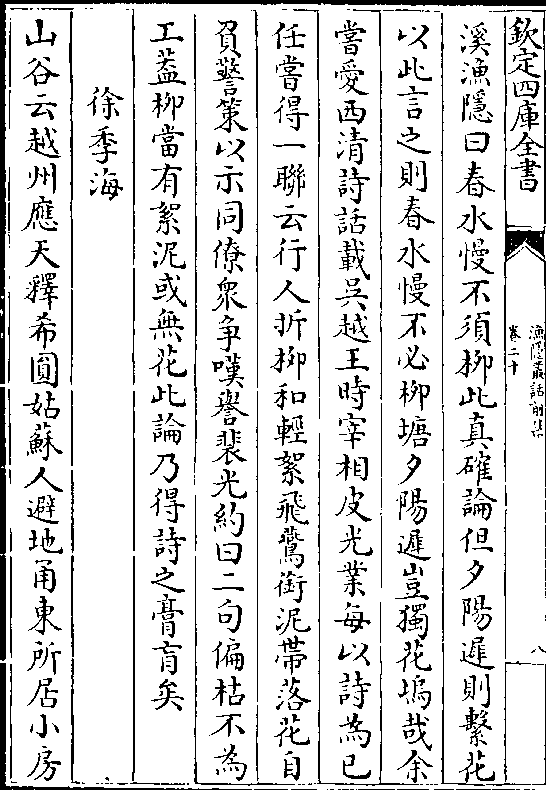 欽定四庫全書
漁隱叢話前集
卷二十
八
溪漁隱曰春水慢不須柳此真確論但夕陽遲則繫花
以此言之則春水慢不必柳塘夕陽遲豈獨花塢哉余
嘗愛西清詩話載吳越王時宰相皮光業每以詩為己
任嘗得一聯云行人折柳和輕絮飛鷰銜泥帶落花自
負警策以示同僚衆争嘆譽裴光約曰二句偏枯不為
工葢柳當有絮泥或無花此論乃得詩之膏肓矣
徐季海
山谷云越州應天釋希圓姑蘇人避地甬東所居小房